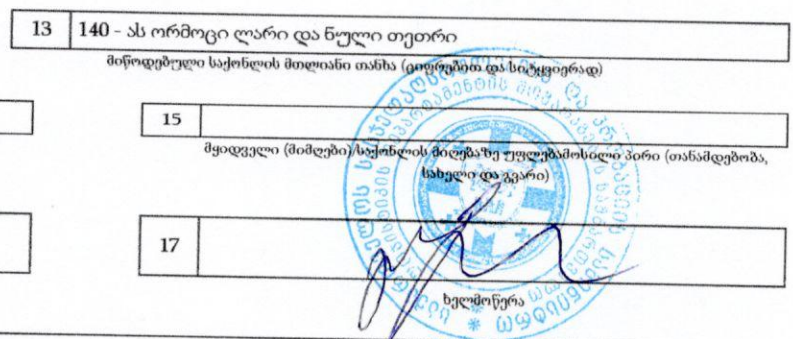 13 140 - ას ორმოცი ლარი და ნული თეთრი
მიწოდებული საქონლის მთლიანი თანხა (ციფრებით და სიტყვიერად)
15
მყიდველი (მიმღები) საქონლის მიღებაზე უფლებამოსილი პირი (თანამდებობა,
სახელი და გვარი)
17
ხელმოწერა